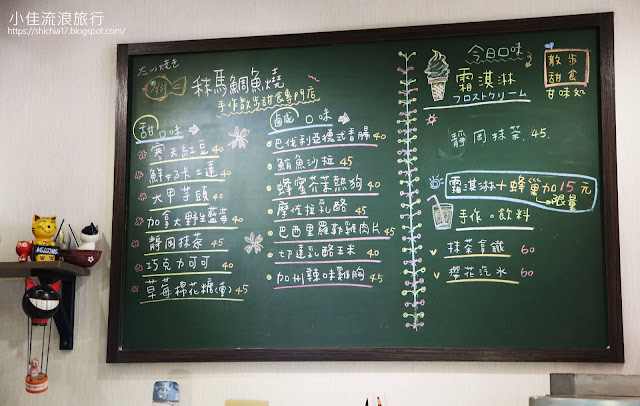 小佳流浪旅行
https://shichia17.blogspot.com/
秣馬鯛魚燒
手作散步甜食專門店
甜口味
萬丹紅豆 40
鮮奶卡士達 40
大甲芋頭 40
加拿大野生藍莓 40
靜岡抹茶 45
巧克力可可 40
草莓棉花糖(東) 45
鹹口味
巴伐利亞德式香腸 40
鮪魚沙拉 45
蜂蜜芥茉熱狗 40
摩佐拉乳酪 45
巴西里羅勒雞肉片 45
切達乳酪玉米 40
加州辣味雞胸 45
今日口味
霜淇淋
フロストクリーム
散步
甜食
甘味処
靜岡抹茶. 45.
霜淇淋+蜂巢加15元
限量
手作。飲料
抹茶拿鐵 60
櫻花汽水 60